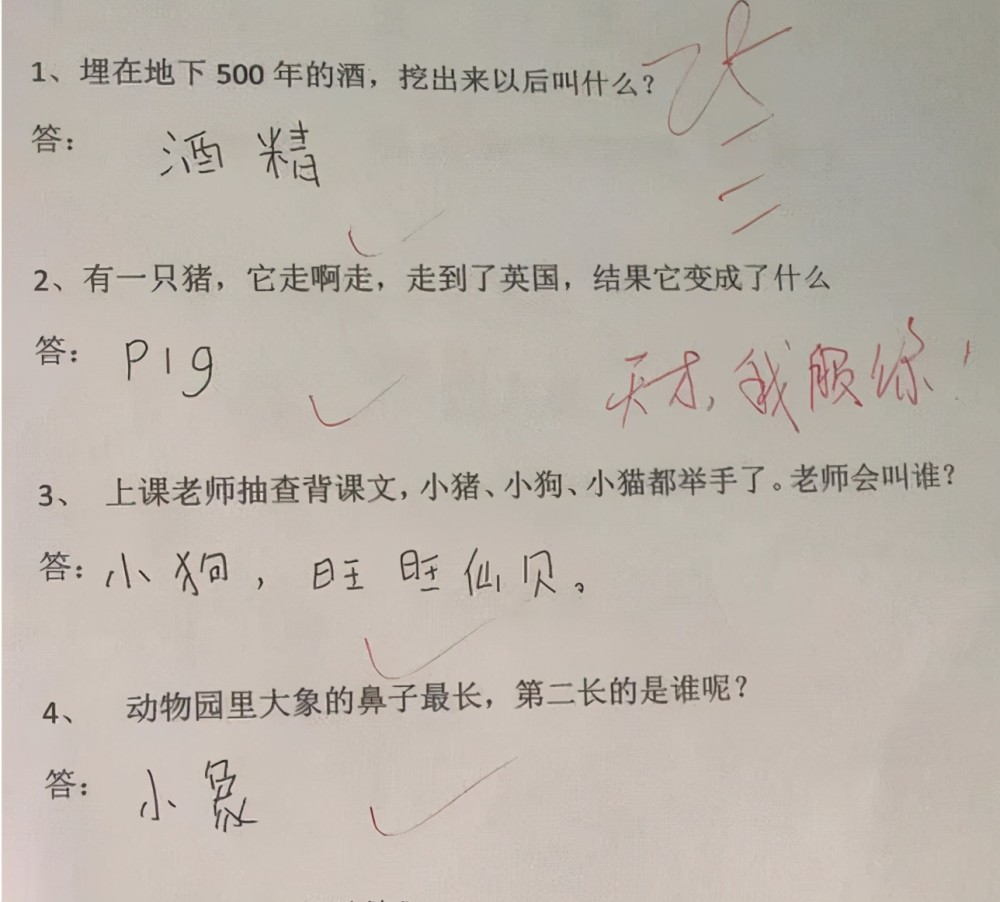 1、埋在地下 500 年的酒，挖出来以后叫什么？
答： 酒精
2、有一只猪，它走啊走，走到了英国，结果它变成了什么
答： PIg
天才，我服你！
3、 上课老师抽查背课文，小猪、小狗、小猫都举手了。老师会叫谁？
答：小狗，旺旺仙贝。
4、 动物园里大象的鼻子最长，第二长的是谁呢？
答： 小象